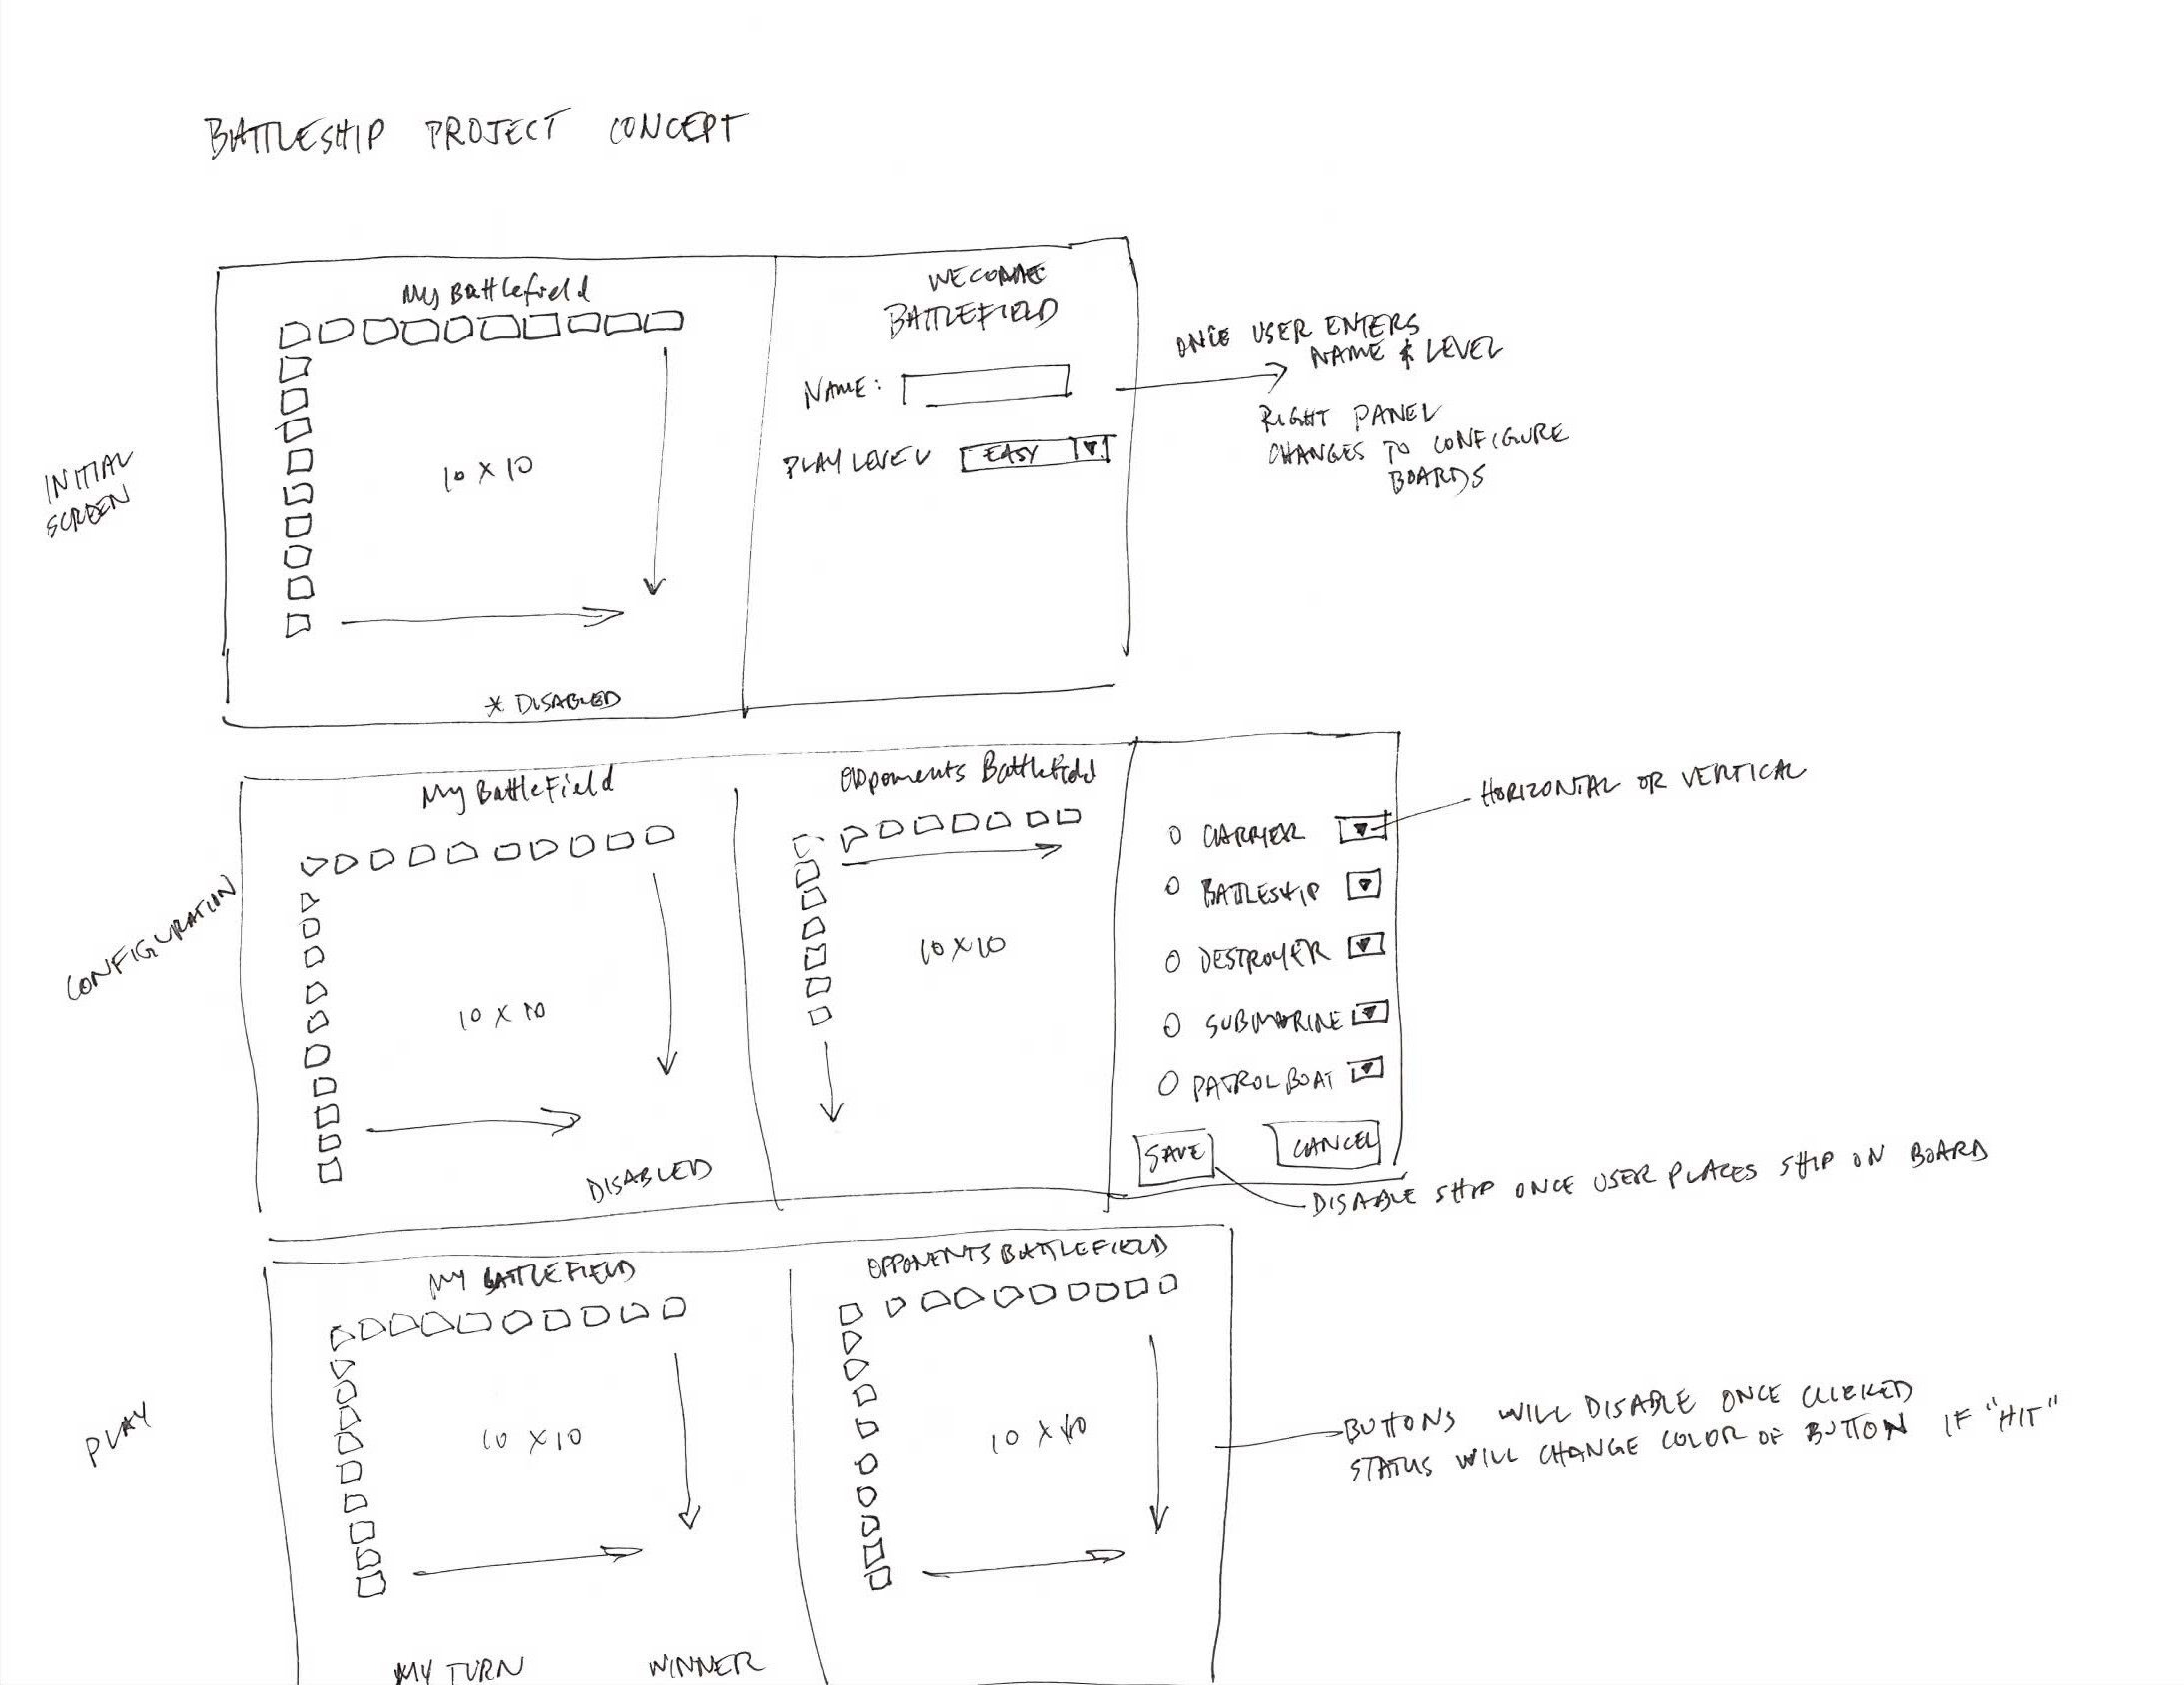 BATTLESHIP PROJECT CONCEPT
INITIAL
SCREEN
My Battlefield
10 X 10
* DISABLED
WECOME
BATTLEFIELD
NAME:
PLAY LEVEL EASY
ONCE USER ENTERS
NAME & LEVEL
RIGHT PANEL
CHANGES TO CONFIGURE
BOARDS
CONFIGURATION
My BattleField
10 X 10
DISABLED
Opponents Battlefield
10 X 10
CARRIER
BATTLESHIP
DESTROYER
SUBMARINE
PATROL BOAT
SAVE CANCEL
HORIZONTAL OR VERTICAL
DISABLE SHIP ONCE USER PLACES SHIP ON BOARD
PLAY
MY BATTLEFIELD
10 X 10
MY TURN WINNER
OPPONENTS BATTLEFIELD
10 X 10
BUTTONS WILL DISABLE ONCE CLICKED
STATUS WILL CHANGE COLOR OF BUTTON IF "HIT"